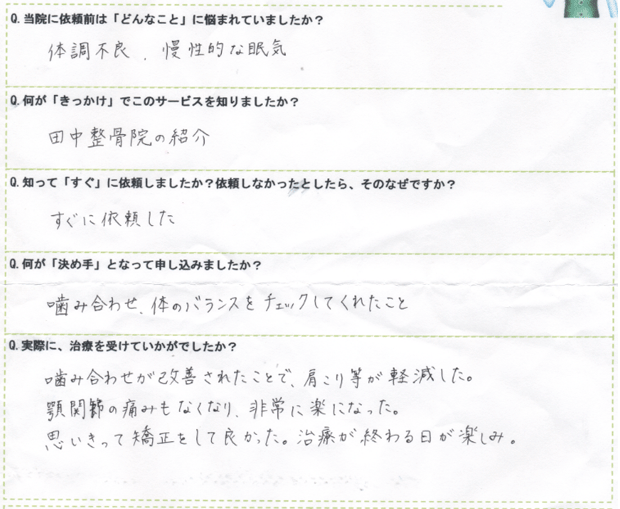 Q.当院に依頼前は「どんなこと」に悩まれていましたか?
体調不良、慢性的な眠気
Q.何が「きっかけ」でこのサービスを知りましたか?
田中整骨院の紹介
Q.知って「すぐ」に依頼しましたか?依頼しなかったとしたら、そのなぜですか?
すぐに依頼した
Q.何が「決め手」となって申し込みましたか?
噛み合わせ、体のバランスをチェックしてくれたこと
Q.実際に、治療を受けていかがでしたか?
噛み合わせが改善されたことで、肩こり等が軽減した。
顎関節の痛みもなくなり、非常に楽になった。
思いきって矯正をして良かった。治療が終わる日が楽しみ。